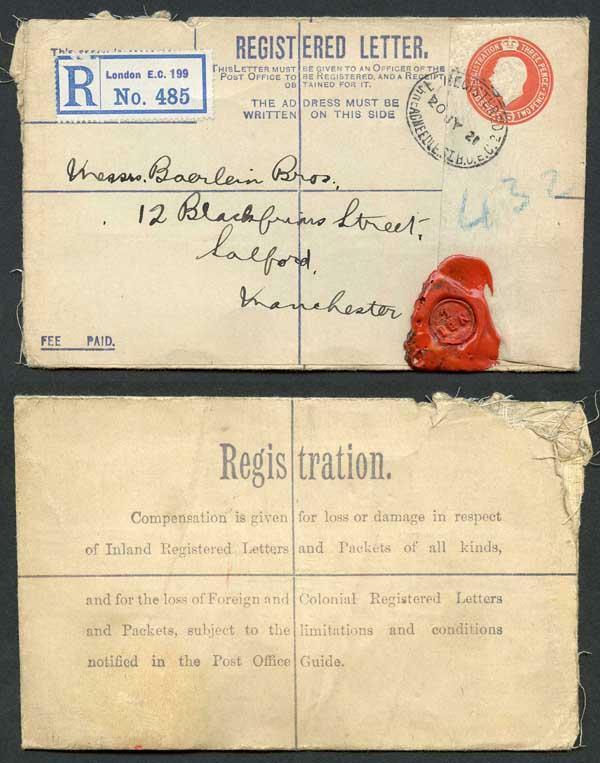 REGISTERED LETTER.
THIS LETTER MUST BE GIVEN TO AN OFFICER OF THE
POST OFFICE TO BE REGISTERED, AND A RECEIPT
OBTAINED FOR IT.
THE ADDRESS MUST BE
WRITTEN ON THIS SIDE
R London E.C. 199
No. 485
REGISTRATION THREE PENCE
TWO PENCE
REGISTERED
20 JY 21
432
Messrs. Baerlein Bros.,
12 Blackfriars Street,
Salford,
Manchester
FEE PAID.
Registration.
Compensation is given for loss or damage in respect
of Inland Registered Letters and Packets of all kinds,
and for the loss of Foreign and Colonial Registered Letters
and Packets, subject to the limitations and conditions
notified in the Post Office Guide.